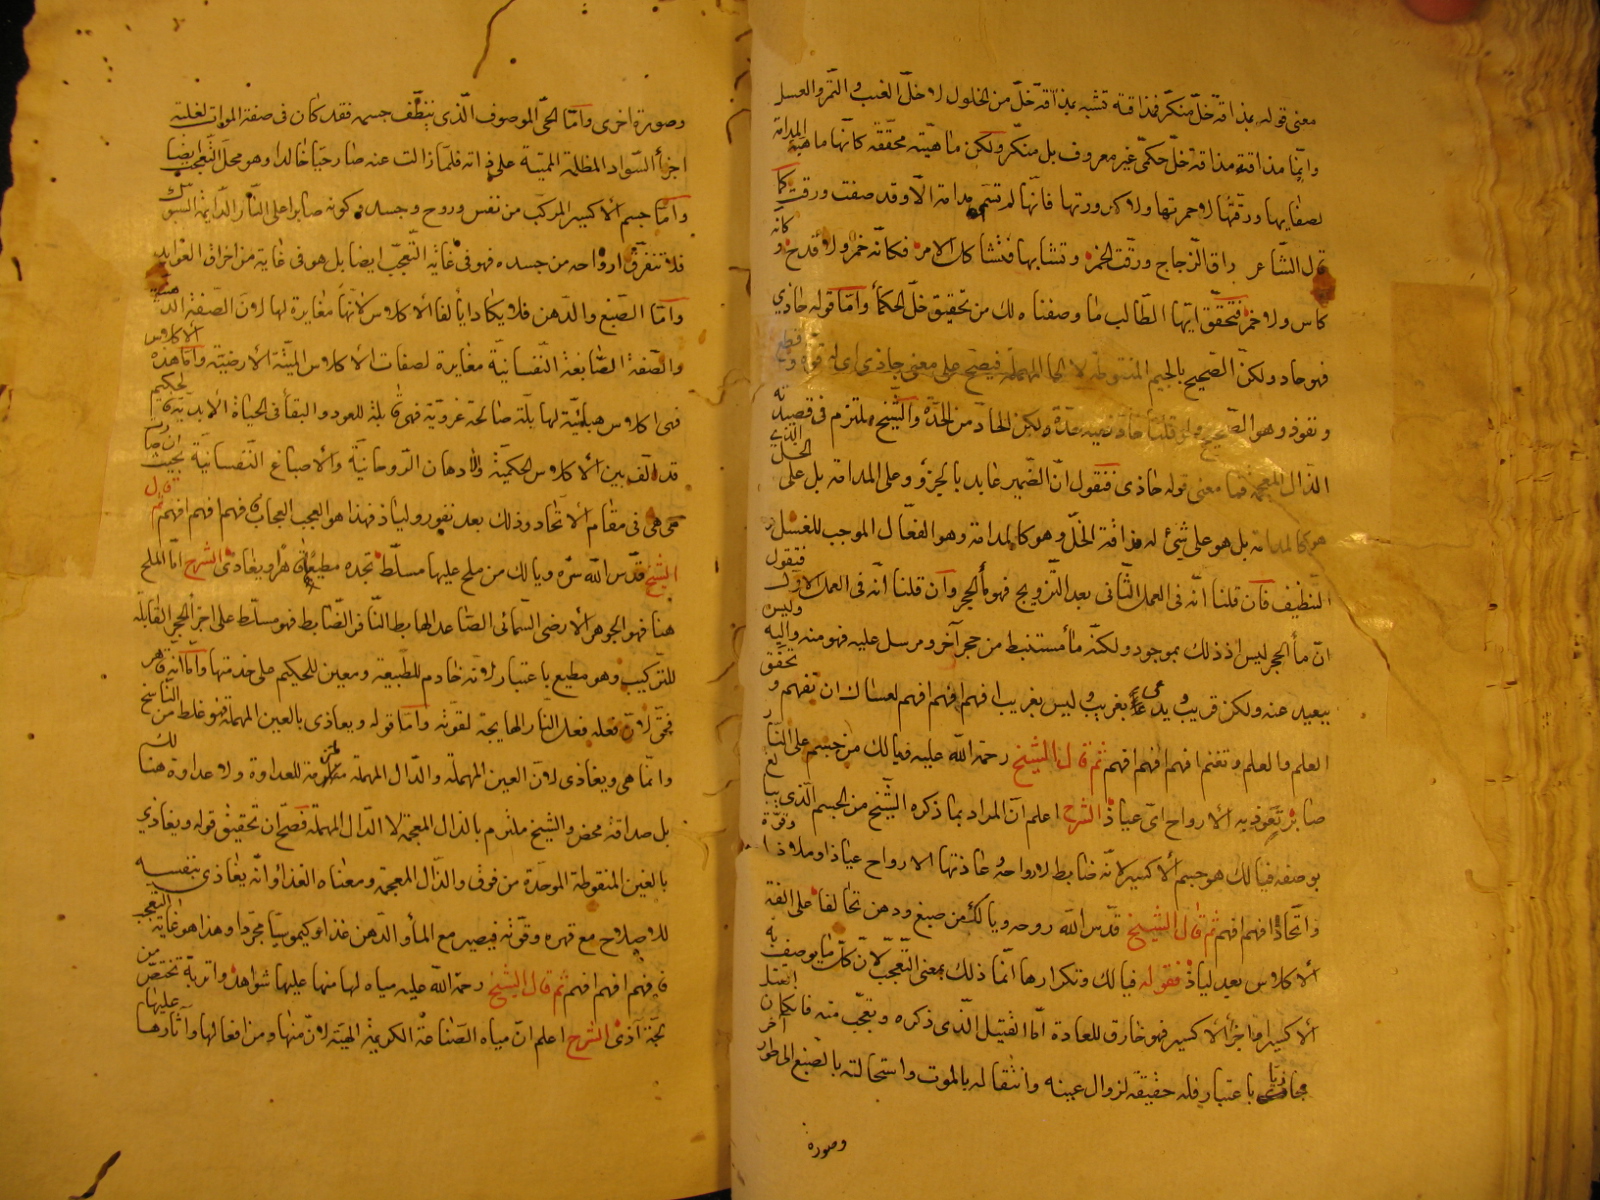 معنى قوله بمذاقة خلّ منكّر فمذاقته تشبه بمذاقة خلّ من الخلول لا خلّ العنب والتمر والعسل
وانّما مذاقته مذاقة خلّ حكمىّ غير معروف بل منكّر ولكن ماهيّته محقّقة كانّها ماهيّة المدامة
لصفايها ورقّتها لا حمرتها ولا كدورتها فانّها لم تسمّ مدامة الّا وقد صفت ورقت كما
قال الشاعر راق الزجاج ورقّت الخمر وتشابها فتشاكل الامر فكانّه خمر ولا قدح و كانّه
كاس ولا خمر فتحقّق ايّها الطّالب ما وصفناه لك من تحقيق خلّ الحكمآء وامّا قوله حاذى
فهو حاد ولكنّ الصّحيح بالجيم المنقوطة لا الحا المهملة فيصحّ على معنى جاذى اى له قوة قطع
ونفوذ وهو الصّحيح ولو قلنا حادّ ففيه حدّة ولكن الحادّ من الحدّة والشّيخ ملتزم فى قصيدته
الذّال المعجمة فما معنى قوله حاذى فنقول انّ الضّمير عايد بالجزو وعلى المدامة بل على الخلّ الذى
هو كالمدامة بل هو على شئ له مذاقة الخلّ وهو كالمدامة وهو الفعّال الموجب للغسل و
التنظيف فان قلنا انّه فى العمل الثّانى بعد التّزويج فهو مآء الحجر وان قلنا انّه فى العمل الاوّل فنقول
انّ مآء الحجر ليس اذ ذلك بموجود ولكنّه مآء مستنبط من حجر آخر ومرسل عليه فهو منه واليه وليس
ببعيد عنه ولكن قريب ويدعى بغريب وليس بغريب افهم افهم افهم لعساك ان تفهم وتحقّق
العلم والعلم وتغنم افهم افهم افهم ثمّ قال الشيخ رحمة الله عليه فيا لك من جسم على النّار
صابر تعوذ به الارواح اىّ عياذ الشرح اعلم انّ المراد بما ذكره الشّيخ من الجسم الّذى يبالغ
بوصفه فيا لك هو جسم الاكسير لانّه ضابط لارواحه وعاذتها الارواح عياذا وملاوذا وقوّة
واتّحادا افهم افهم ثمّ قال الشّيخ قدّس الله روحه ويا لك من صبغ ودهن تحالفا على الفة
الاكلاس بعد لياذ فقوله فيا لك وتكرارها انّما ذلك بمعنى التّعجّب لانّ كلّ ما يوصف به
الاكسير او اجزآء الاكسير فهو خارق للعادة امّا القتيل الّذى ذكره وتعجّب منه فان كان القتل
مجازيّا باعتبار فله حقيقة لزوال عينه وانتقاله بالموت واستحالته بالصّبغ الى طور آخر
وصورة
وصورة اخرى وامّا الحىّ الموصوف الّذى ينظّف جسمه فقد كان فى صفة الموات لغلبة
اجزآء السّواد المظلمة المميتة على ذاته فلمّا زالت عنه صار حيّا خالدا وهو محلّ التّعجّب ايضا
وامّا جسم الاكسير المركّب من نفس وروح وجسد وكونه صابرا على النّار الدّايمة السّبوك
فلا تتفرّق ارواحه من جسده فهو فى غاية التّعجّب ايضا بل هو فى غاية من اخراق العوايد
وامّا الصّبغ والدّهن فلا يكادا يألفا الاكلاس لانّها مغايرة لها لانّ الصّفة الدّهنيّة
والصّفة الصّابغة النّفسانيّة مغايرة لصفات الاكلاس الميّتة الارضيّة وامّا هذه الاكلاس
فهى اكلاس هبآئيّة لها بلّة صالحة غرويّة فهى قابلة للعود والبقآء فى الحياة الابديّة فالحكيم
قد الّف بين الاكلاس الحكميّة والادهان الرّوحانيّة والاصباغ النّفسانيّة بحيث ان صار
هى هى فى مقام الاتّحاد وذلك بعد نفور ولياذ فهذا هو العجب العجاب فهم فهم افهم ثمّ قال
الشيخ قدّس الله سرّه ويا لك من ملح عليها مسلّط تجده مطيعا قاهرا ويغاذى الشرح امّا الملح
هنا فهو الجوهر الارضى السّمائى الصّاعد الهابط النّافر الضّابط فهو مسلّط على اجزآء الحجر القابلة
للتّركيب وهو مطيع باعتبار لانّه خادم للطّبيعة ومعين للحكيم على خدمتها وامّا انّه قاهر
فحقّ لانّ فعله فعل النّار الهايجة لقوّته وامّا قوله ويعاذى بالعين المهملة فهو غلط من النّاسخ
وانّما هى ويغاذى لانّ العين المهملة والدّال المهملة للعداوة ولا عداوة هنا لك
بل صداقة محض والشيخ ملتزم بالذال المعجمة لا الدّال المهملة فصحّ ان تحقيق قوله ويغاذي
بالغين المنقوطة الموحّدة من فوق والذّال المعجمة ومعناه الغذاء وانّه يغاذى بنفسه
للاصلاح مع قهره وقوّته فيصير مع المآء والدّهن غذاء وكيموسيّا مجرّدا وهذا هو غاية التعجب
فافهم افهم افهم ثمّ قال الشّيخ رحمة الله عليه مياه لها منها عليها شواهد واتربة تختصّ من
بجنّة آذى الشرح اعلم انّ مياه الصّناعة الكريمة الهيّة لانّ منها ومن افعالها وآثارها عليها